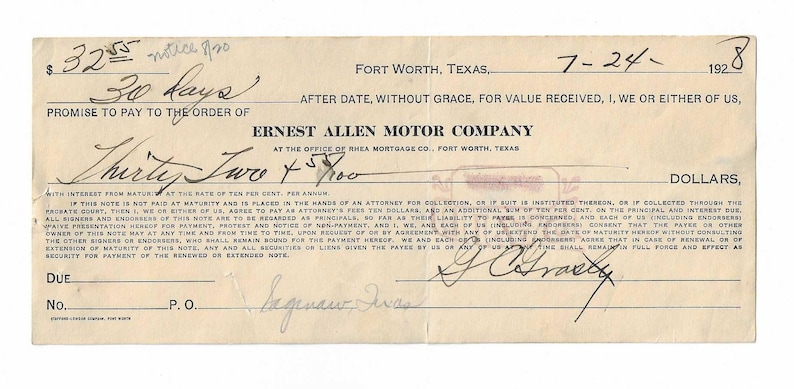 $ 32 55 notice 8/20 FORT WORTH, TEXAS, 7-24- 1928
30 days AFTER DATE, WITHOUT GRACE, FOR VALUE RECEIVED, I, WE OR EITHER OF US,
PROMISE TO PAY TO THE ORDER OF
ERNEST ALLEN MOTOR COMPANY
AT THE OFFICE OF RHEA MORTGAGE CO., FORT WORTH, TEXAS
Thirty Two & 55/100 DOLLARS,
WITH INTEREST FROM MATURITY AT THE RATE OF TEN PER CENT. PER ANNUM.
IF THIS NOTE IS NOT PAID AT MATURITY AND IS PLACED IN THE HANDS OF AN ATTORNEY FOR COLLECTION, OR IF SUIT IS INSTITUTED THEREON, OR IF COLLECTED THROUGH THE
PROBATE COURT, THEN I, WE OR EITHER OF US, AGREE TO PAY AS ATTORNEY'S FEES TEN DOLLARS, AND AN ADDITIONAL SUM OF TEN PER CENT. ON THE PRINCIPAL AND INTEREST DUE.
ALL SIGNERS AND ENDORSERS OF THIS NOTE ARE TO BE REGARDED AS PRINCIPALS, SO FAR AS THEIR LIABILITY TO PAYEE IS CONCERNED, AND EACH OF US (INCLUDING ENDORSERS)
WAIVE PRESENTATION HEREOF FOR PAYMENT, PROTEST AND NOTICE OF NON-PAYMENT, AND I, WE, AND EACH OF US (INCLUDING ENDORSERS) CONSENT THAT THE PAYEE OR OTHER
OWNER OF THIS NOTE MAY AT ANY TIME AND FROM TIME TO TIME, UPON REQUEST OF OR BY AGREEMENT WITH ANY OF US, EXTEND THE DATE OF MATURITY HEREOF WITHOUT CONSULTING
THE OTHER SIGNERS OR ENDORSERS, WHO SHALL REMAIN BOUND FOR THE PAYMENT HEREOF. WE AND EACH OF US (INCLUDING ENDORSERS) AGREE THAT IN CASE OF RENEWAL OR OF
EXTENSION OF MATURITY OF THIS NOTE, ANY AND ALL SECURITIES OR LIENS GIVEN THE PAYEE BY US OR ANY OF US AT ANY TIME SHALL REMAIN IN FULL FORCE AND EFFECT AS
SECURITY FOR PAYMENT OF THE RENEWED OR EXTENDED NOTE.
DUE G C
NO. P. O. Saginaw, Texas
STAFFORD-LOWDON COMPANY, FORT WORTH